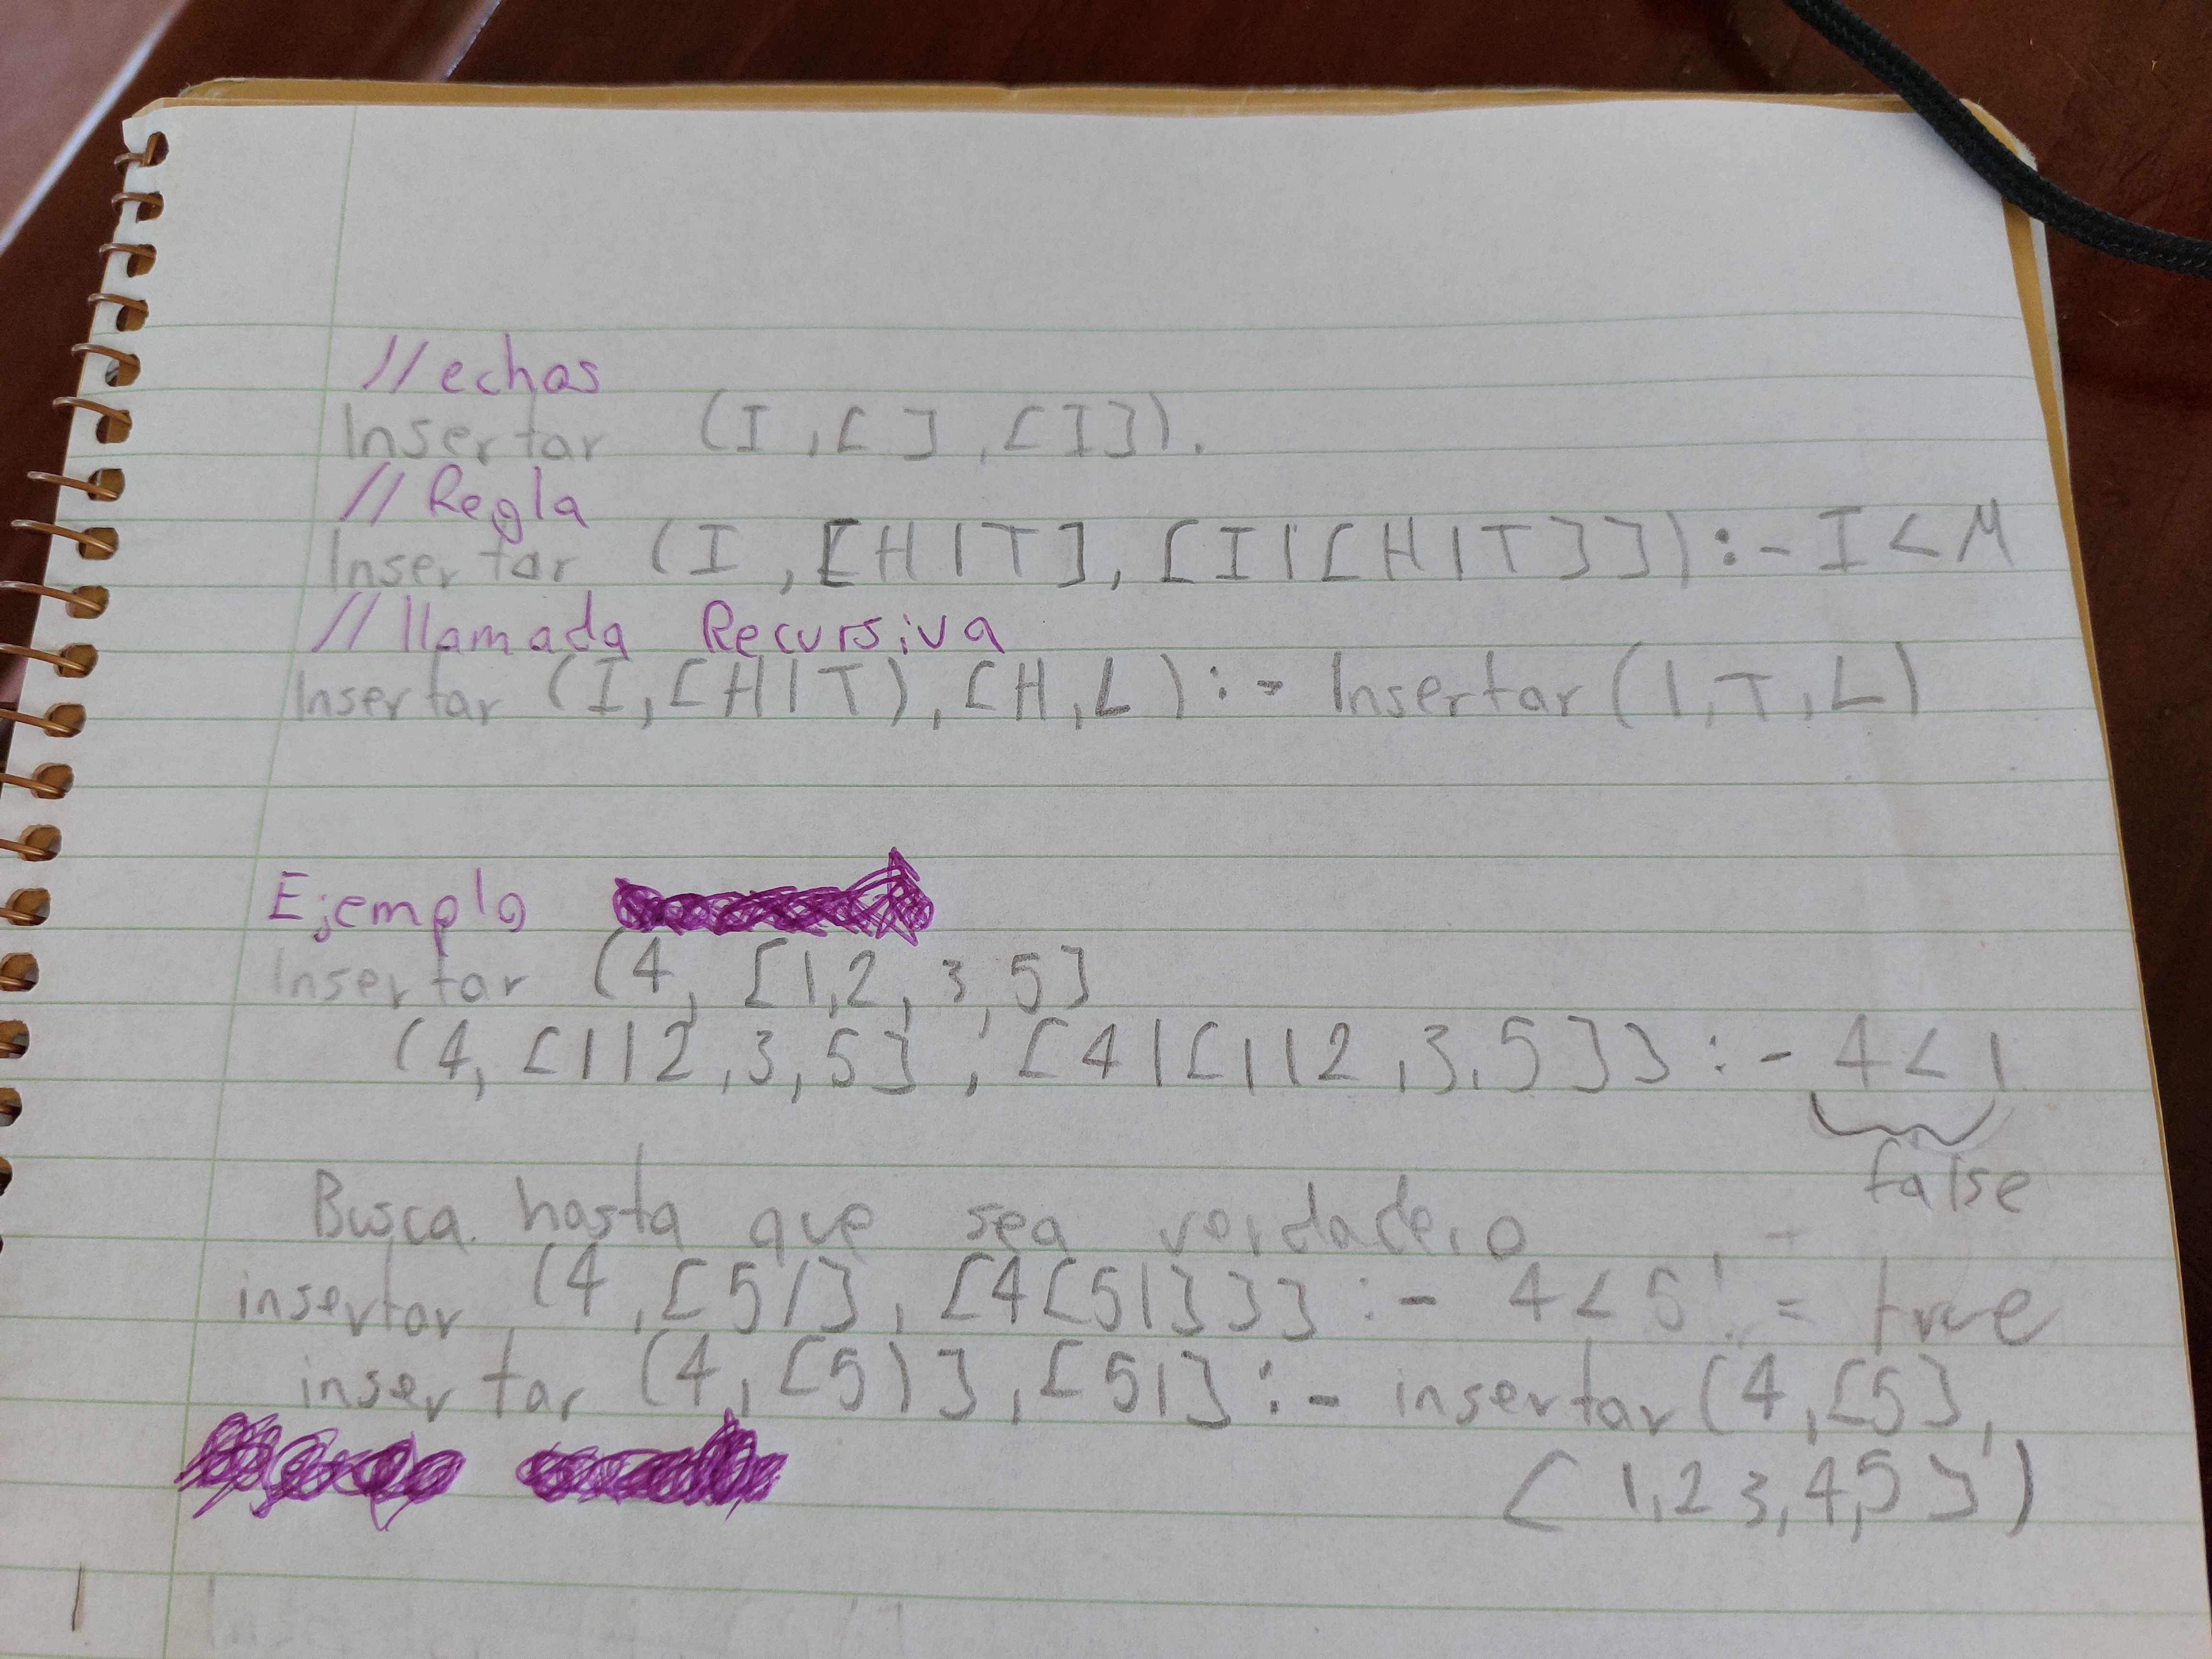 //echos
Insertar (I,[ ],[I]).
//Regla
Insertar (I,[H|T],[I|[H|T]]):-I<H
//llamada Recursiva
Insertar (I,[H|T),[H,L):- Insertar(I,T,L)
Ejemplo
Insertar (4, [1,2,3,5]
(4,[1|2,3,5],[4|[1|2,3,5]]:-4<1
false
Busca hasta que sea verdadero
insertar (4,[5|],[4[5|]]]:- 4<5 = true
insertar (4,[5)],[5|]:- insertar(4,[5],
[1,2 3,4,5])